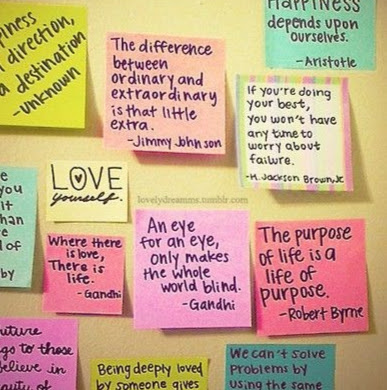 piness
direction,
a destination
-unknown
The difference
between
ordinary and
extraordinary
is that little
extra.
-Jimmy Johnson
HAPPINESS
depends upon
ourselves.
-Aristotle
If you're doing
your best,
you won't have
any time to
worry about
failure.
-H. Jackson Brown, Jr.
you
it
han
of
by
LOVE
yourself.
lovelydreamms.tumblr.com
Where there
is love,
There is
life.
-Gandhi
An eye
for an eye,
only makes
the whole
world blind.
-Gandhi
The purpose
of life is a
life of
purpose.
-Robert Byrne
uture
gs to those
elieve in
auty of
Being deeply loved
by someone gives
We can't solve
problems by
using the same